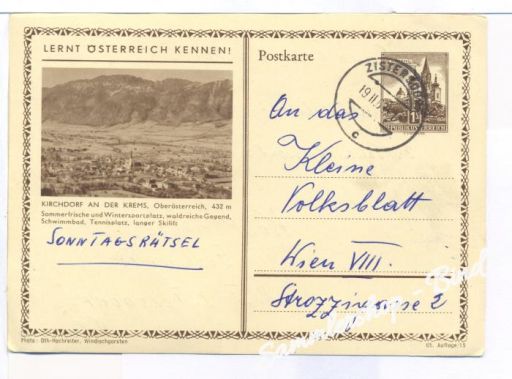 LERNT ÖSTERREICH KENNEN!
KIRCHDORF AN DER KREMS, Oberösterreich, 432 m
Sommerfrische und Wintersportplatz, waldreiche Gegend,
Schwimmbad, Tennisplatz, langer Skilift
SONNTAGSRÄTSEL
Photo: Oth-Hochreiter, Windischgarsten
Postkarte
REPUBLIK ÖSTERREICH
19 II
c
An das
Kleine
Volksblatt
Wien VIII.
Strozzigasse 2
61. Auflage/13